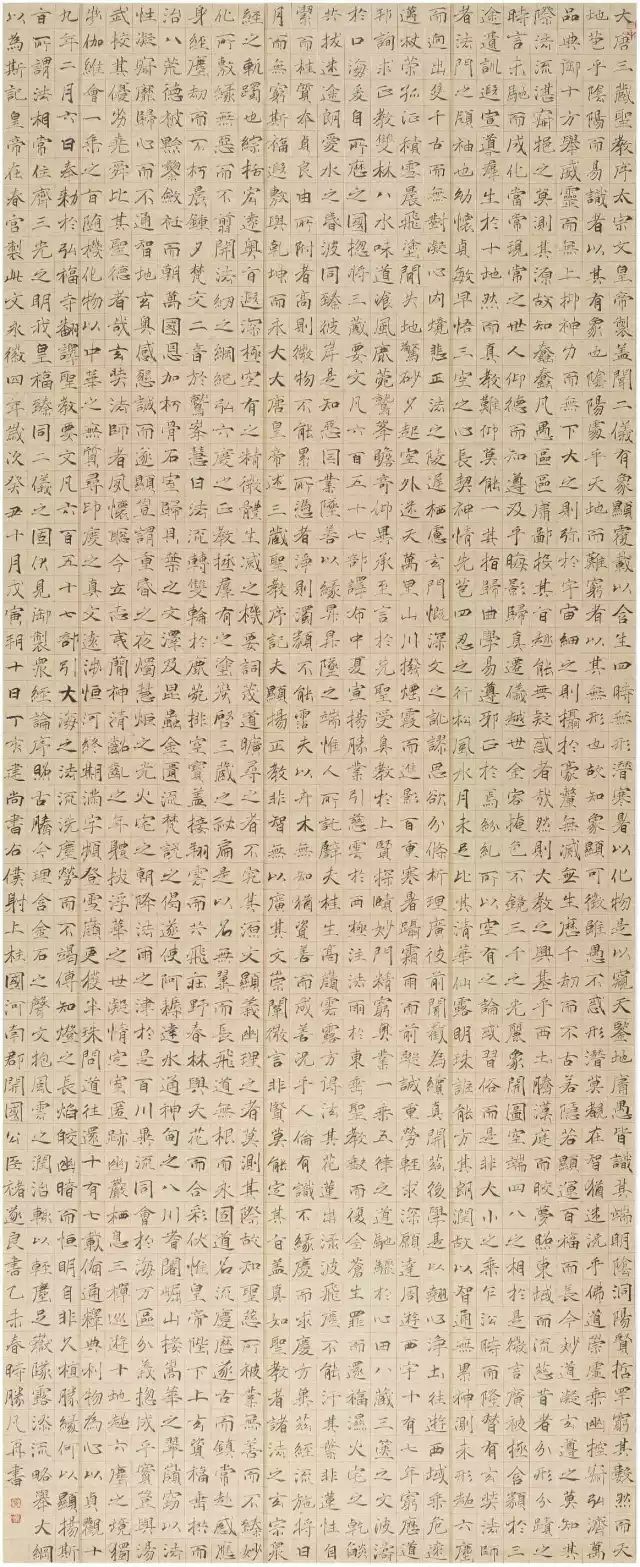 大唐三藏聖教序太宗文皇帝製蓋聞二儀有象顯覆載以含生四時無形潛寒暑以化物是以窺天鑒地庸愚皆識其端明陰洞陽賢哲罕窮其數然而天
地苞乎陰陽而易識者以其有象也陰陽處乎天地而難窮者以其無形也故知象顯可徵雖愚不惑形潛莫覩在智猶迷況乎佛道崇虛乘幽控寂弘濟萬
品典御十方舉威靈而無上抑神力而無下大之則彌於宇宙細之則攝於豪釐無滅無生歷千劫而不古若隱若顯運百福而長今妙道凝玄遵之莫知其
際法流湛寂挹之莫測其源故知蠢蠢凡愚區區庸鄙投其旨趣能無疑惑者哉然則大教之興基乎西土騰漢庭而皎夢照東域而流慈昔者分形分跡之
時言未馳而成化當常現常之世人仰德而知遵及乎晦影歸真遷儀越世金容掩色不鏡三千之光麗象開圖空端四八之相於是微言廣被拯含類於三
途遺訓遐宣導群生於十地然而真教難仰莫能一其指歸曲學易遵邪正於焉紛糺所以空有之論或習俗而是非大小之乘乍沿時而隆替有玄奘法師
者法門之領袖也幼懷貞敏早悟三空之心長契神情先苞四忍之行松風水月未足比其清華仙露明珠詎能方其朗潤故以智通無累神測未形超六塵
而迥出隻千古而無對凝心內境悲正法之陵遲栖慮玄門慨深文之訛謬思欲分條析理廣彼前聞截偽續真開茲後學是以翹心淨土往遊西域乘危遠
邁杖策孤征積雪晨飛塗間失地驚砂夕起空外迷天萬里山川撥煙霞而進影百重寒暑躡霜雨而前蹤誠重勞輕求深願達周遊西宇十有七年窮歷道
邦詢求正教雙林八水味道飡風鹿菀鷲峯瞻奇仰異承至言於先聖受真教於上賢探賾妙門精窮奧業一乘五律之道馳驟於心田八藏三篋之文波濤
於口海爰自所歷之國揔將三藏要文凡六百五十七部譯布中夏宣揚勝業引慈雲於西極注法雨於東垂聖教缺而復全蒼生罪而還福濕火宅之乾燄
共拔迷途朗愛水之昏波同臻彼岸是知惡因業墜善以緣昇昇墜之端惟人所託譬夫桂生高嶺雲露方得泫其花蓮出淥波飛塵不能汙其葉非蓮性自
潔而桂質本貞良由所附者高則微物不能累所憑者淨則濁類不能霑夫以卉木無知猶資善而成善況乎人倫有識不緣慶而求慶方冀茲經流施將日
月而無窮斯福遐敷與乾坤而永大大唐皇帝述三藏聖教序記夫顯揚正教非智無以廣其文崇闡微言非賢莫能定其旨蓋真如聖教者諸法之玄宗衆
經之軌躅也綜括宏遠奧旨遐深極空有之精微體生滅之機要詞茂道曠尋之者不究其源文顯義幽理之者莫測其際故知聖慈所被業無善而不臻妙
化所敷緣無惡而不翦開法網之綱紀弘六度之正教拯群有之塗炭啓三藏之祕扃是以名無翼而長飛道無根而永固道名流慶歷遂古而鎮常赴感應
身經塵劫而不朽晨鍾夕梵交二音於鷲峯慧日法流轉雙輪於鹿菀排空寶蓋接翔雲而共飛莊野春林與天花而合彩伏惟皇帝陛下上玄資福垂拱而
治八荒德被黔黎斂衽而朝萬國恩加朽骨石室歸貝葉之文澤及昆蟲金匱流梵說之偈遂使阿耨達水通神甸之八川耆闍崛山接嵩華之翠嶺竊以法
性凝寂靡歸心而不通智地玄奧感懇誠而遂顯豈謂重昏之夜燭慧炬之光火宅之朝降法雨之津於是百川異流同會於海萬區分義揔成乎實豈與湯
武校其優劣堯舜比其聖德者哉玄奘法師者夙懷聰令立志夷簡神清齠齔之年體拔浮華之世凝情定室匿跡幽巖栖息三禪巡遊十地超六塵之境獨
步伽維會一乘之旨隨機化物以中華之無質尋印度之真文遠涉恒河終期滿字頻登雪嶺更獲半珠問道往還十有七載備通釋典利物為心以貞觀十
九年二月六日奉勅於弘福寺翻譯聖教要文凡六百五十七部引大海之法流洗塵勞而不竭傳知燈之長焰皎幽暗而恒明自非久植勝緣何以顯揚斯
旨所謂法相常住齊三光之明我皇福臻同二儀之固伏見御製衆經論序照古騰今理含金石之聲文抱風雲之潤治輒以輕塵足嶽墜露添流略舉大綱
以為斯記皇帝在春宮製此文永徽四年歲次癸丑十月戊寅朔十日丁亥建尚書右僕射上柱國河南郡開國公臣褚遂良書乙未春時勝凡再書